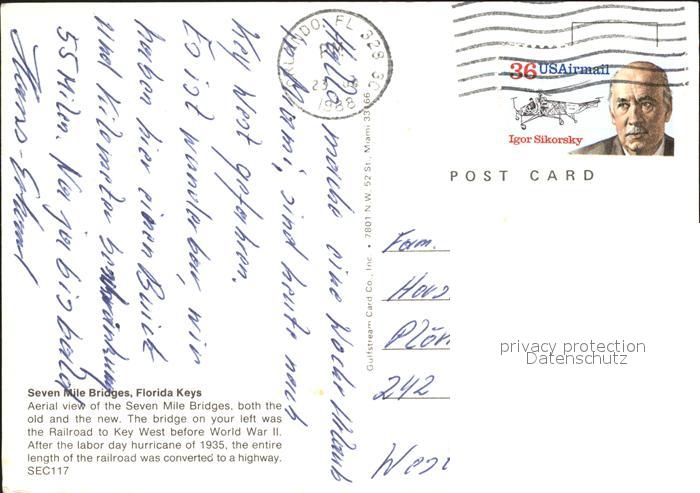 ORLANDO, FL 328
PM
1988
36 USAirmail
Igor Sikorsky
POST CARD
Hallo mache eine Woche Urlaub
in Miami, sind heute nach
Key West gefahren.
Es ist wunderbar, wir
haben hier einen Buick
und Kilometer
55 Milen. Na ja bis bald
Hans-
Gulfstream Card Co., Inc. • 7801 N.W. 52 St., Miami 33166
Fam.
Hors
Plön
242
West
privacy protection
Datenschutz
Seven Mile Bridges, Florida Keys
Aerial view of the Seven Mile Bridges, both the
old and the new. The bridge on your left was
the Railroad to Key West before World War II.
After the labor day hurricane of 1935, the entire
length of the railroad was converted to a highway.
SEC117